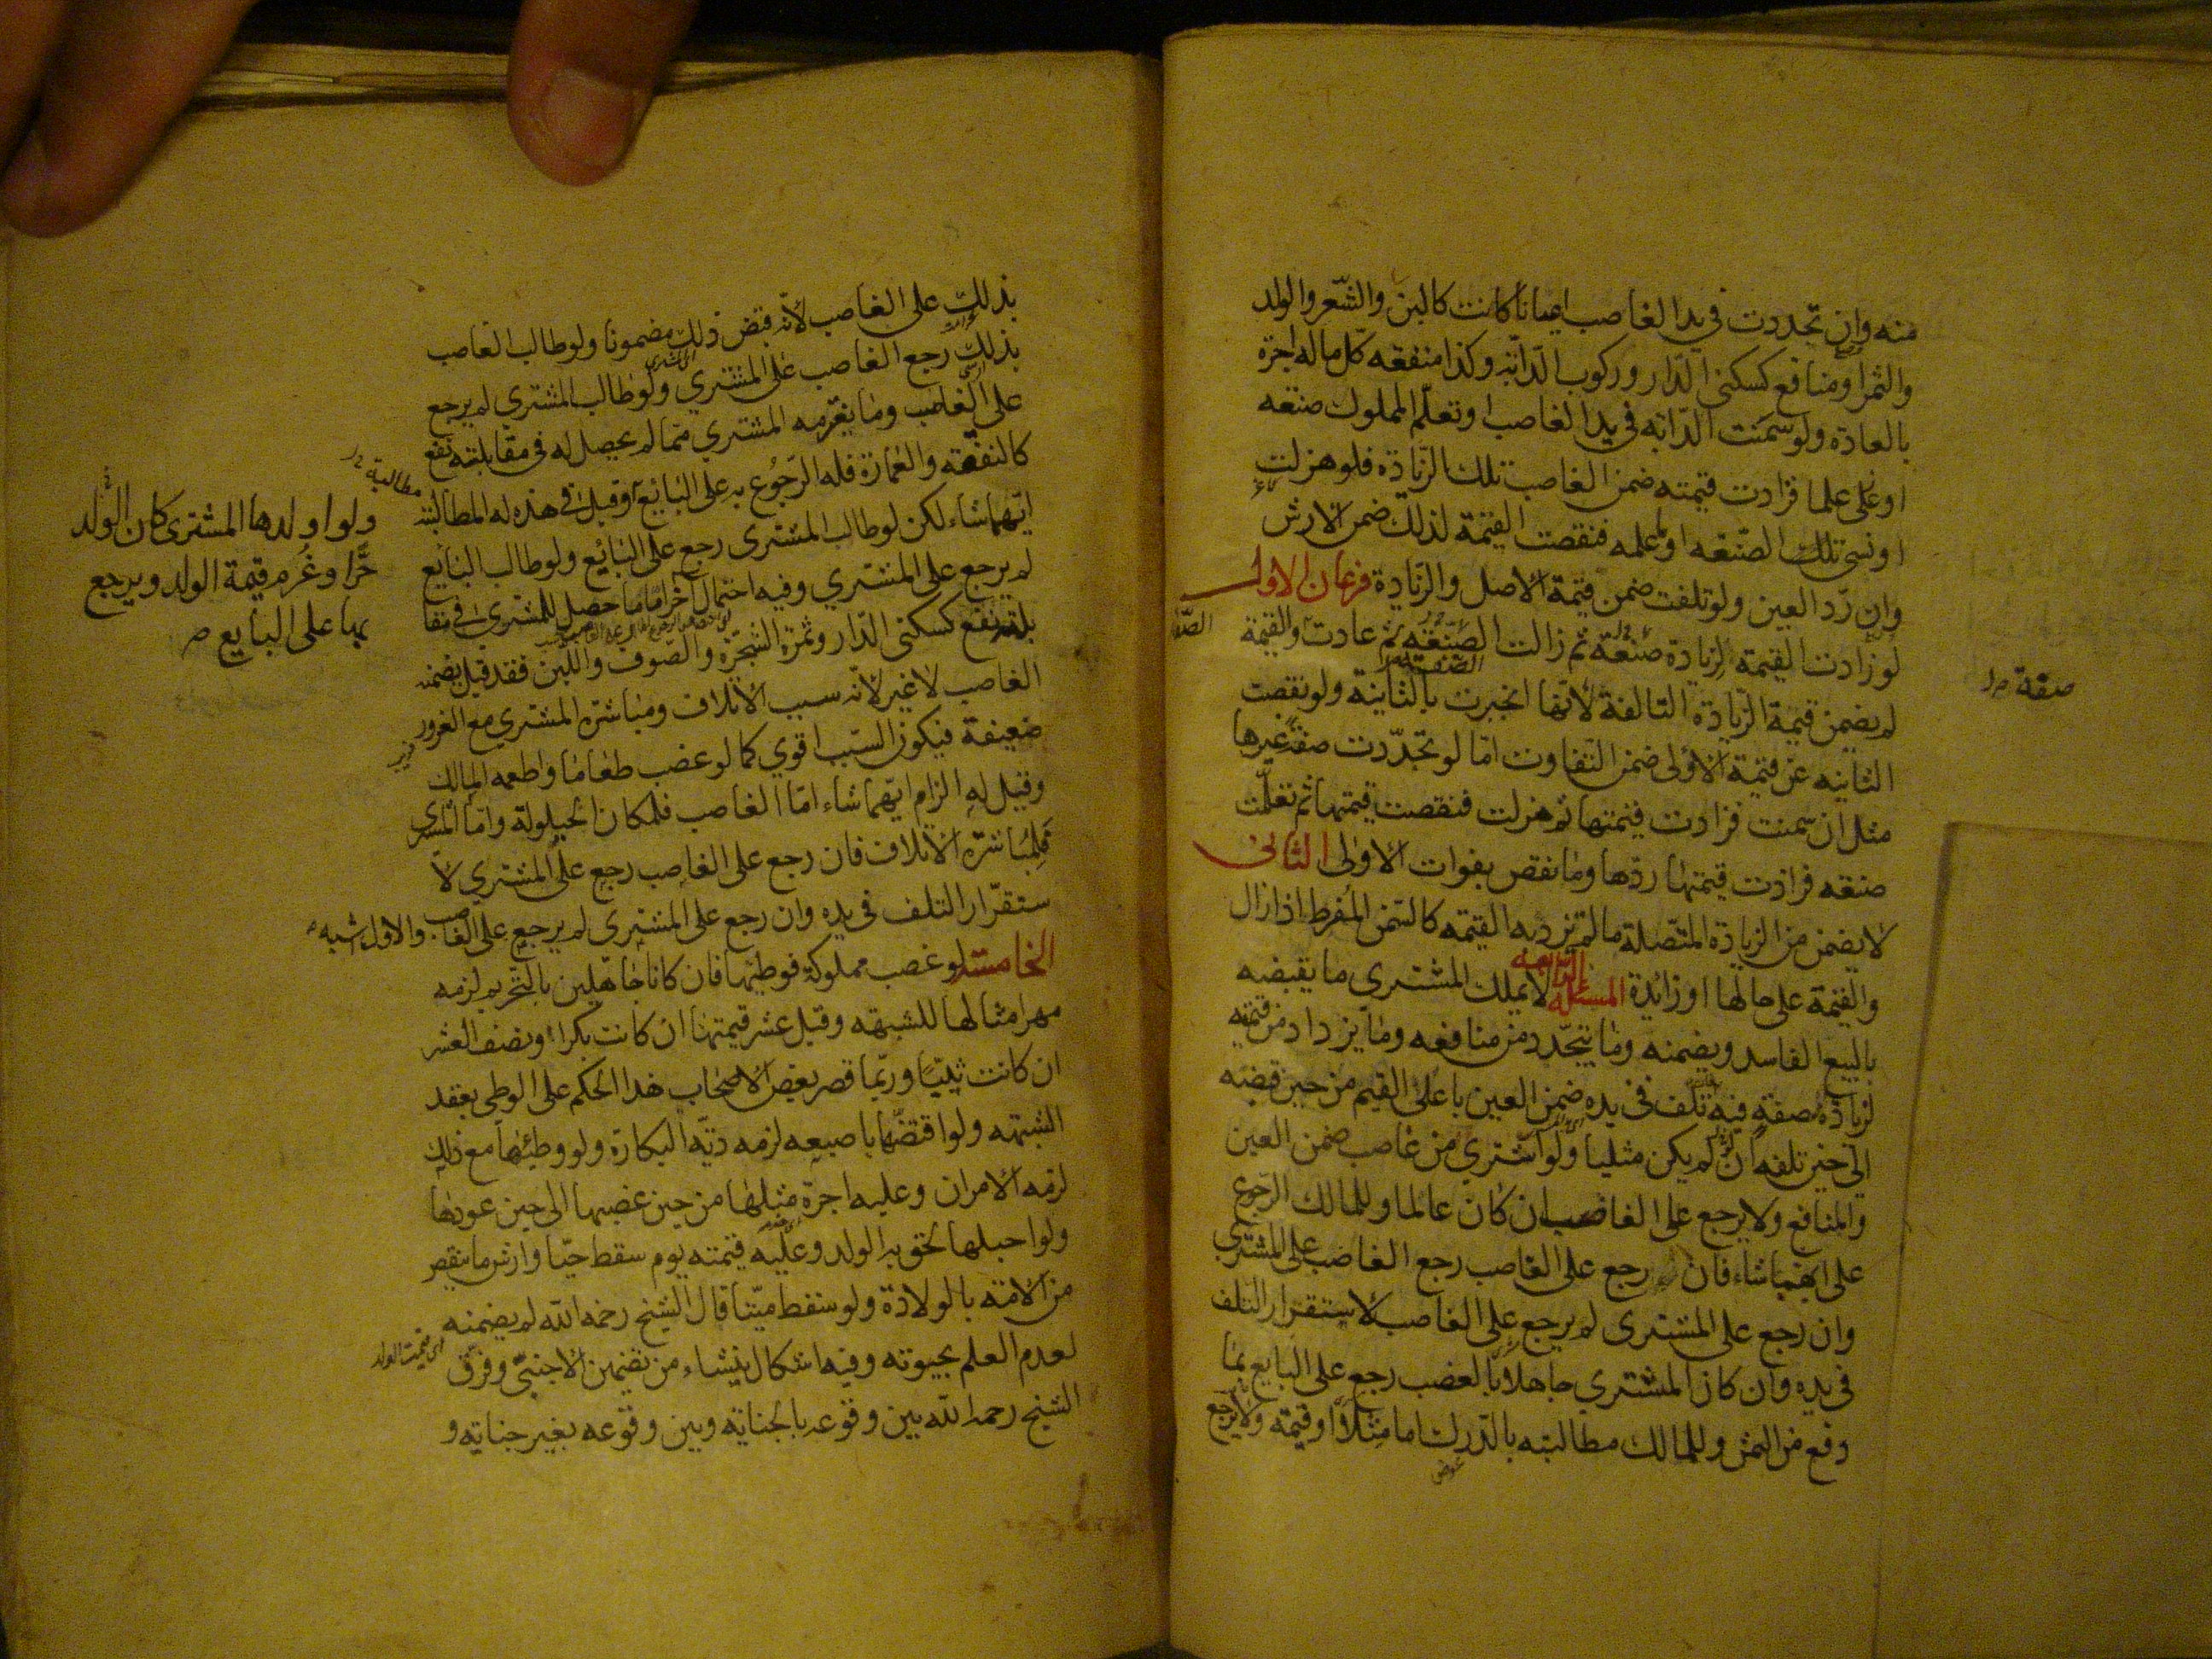 منه وان تجددت في يد الغاصب اعيانا كانت كالبن والشعر والولد
والثمر او منافع كسكنى الدار وركوب الدابة وكذا منفعه كل ماله اجرة
بالعادة ولو سمنت الدابه في يد الغاصب او تعلم المملوك صنعه
او علما فزادت قيمته ضمن الغاصب تلك الزيادة فلو هزلت
او نسى تلك الصنعه او ما علمه فنقصت القيمة لذلك ضمن الارش
وان رد العين ولو تلفت ضمن قيمة الاصل والزيادة فرعان الاول
لو زادت القيمة لزيادة صنعة ثم زالت الصنعه ثم عادت والقيمة
لم يضمن قيمة الزيادة التالفة لانها انجبرت بالثانية ولو نقصت
الثانيه عن قيمة الاولى ضمن التفاوت اما لو تجددت صفة غيرها
مثل ان سمنت فزادت قيمتها ثم هزلت فنقصت قيمتها ثم تعلمت
صنعه فزادت قيمتها ردها وما نقص بفوات الاولى الثانى
لا يضمن من الزيادة المتصلة ما لم تزد به القيمه كالسمن المفرط اذا زال
والقيمة على حالها او زائدة المسئلة الرابعه لا يملك المشترى ما يقبضه
بالبيع الفاسد ويضمنه وما يتجدد من منافعه وما يزداد من قيمته
لزيادة صفة فيه تلف في يده ضمن العين باعلى القيم من حين قبضه
الى حين تلفه ان لم يكن مثليا ولو اشترى من غاصب ضمن العين
والمنافع ولا يرجع على الغاصب ان كان عالما وللمالك الرجوع
على ايهما شاء فان رجع على الغاصب رجع الغاصب على المشتري
وان رجع على المشترى لم يرجع على الغاصب لاستقرار التلف
في يده وان كان المشتري جاهلا بالغصب رجع على البايع بما
دفع من الثمن وللمالك مطالبته بالدرك اما مثلا او قيمة ولا يرجع
صفة
بذلك على الغاصب لانه قبض ذلك مضمونا ولو طالب الغاصب
بذلك رجع الغاصب على المشتري ولو طالب المشتري لم يرجع
على الغاصب وما يغرمه المشتري مما لم يحصل له في مقابلته نفع
كالنفقه والعمارة فله الرجوع به على البايع او قيل في هذه له المطالبة
ايهما شاء لكن لو طالب المشترى رجع على البايع ولو طالب البايع
لم يرجع على المشتري وفيه احتمال آخر اما ما حصل للمشتري في مقا
بلته نفع كسكنى الدار وثمرة الشجرة والصوف واللبن فقد قيل يضمنه
الغاصب لا غير لانه سبب الاتلاف ومباشرة المشتري مع الغرور
ضعيفة فيكون السبب اقوى كما لو غصب طعاما واطعمه المالك
وقيل له الزام ايهما شاء اما الغاصب فلمكان الحيلولة واما المشترى
فلمباشرة الاتلاف فان رجع على الغاصب رجع على المشتري لا
ستقرار التلف في يده وان رجع على المشترى لم يرجع على الغاصب والاول اشبه
الخامسة لو غصب مملوكة فوطئها فان كانا جاهلين بالتحريم لزمه
مهر امثالها للشبهه وقيل عشر قيمتها ان كانت بكرا ونصف العشر
ان كانت ثيبا وربما قصر بعض الاصحاب هذا الحكم على الوطى بعقد
الشبهه ولو اقتضها باصبعه لزمه دية البكارة ولو وطئها مع ذلك
لزمه الامران وعليه اجرة مثلها من حين غصبها الى حين عودها
ولو احبلها لحق به الولد وعليه قيمته يوم سقط حيا وارش ما ينقص
من الامه بالولادة ولو سقط ميتا قال الشيخ رحمه الله لم يضمنه
لعدم العلم بحيوته وفيه اشكال ينشاء من تضمين الاجنبي وفرق
الشيخ رحمه الله بين وقوعه بالجناية وبين وقوعه بغير جنايه و
مطالبة
ولو اولدها المشترى كان الولد
حرا وغرم قيمة الولد ويرجع
بها على البايع